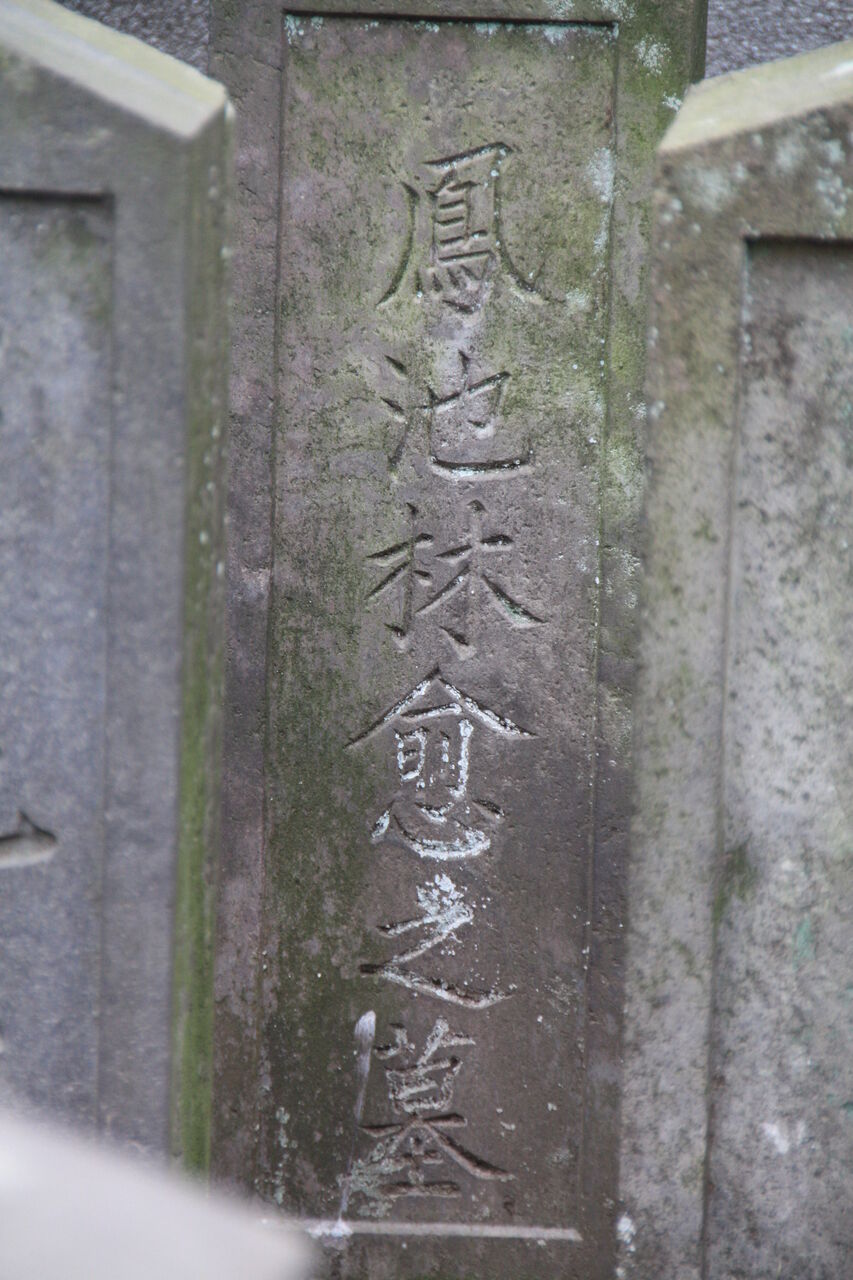 鳳池林愈之墓